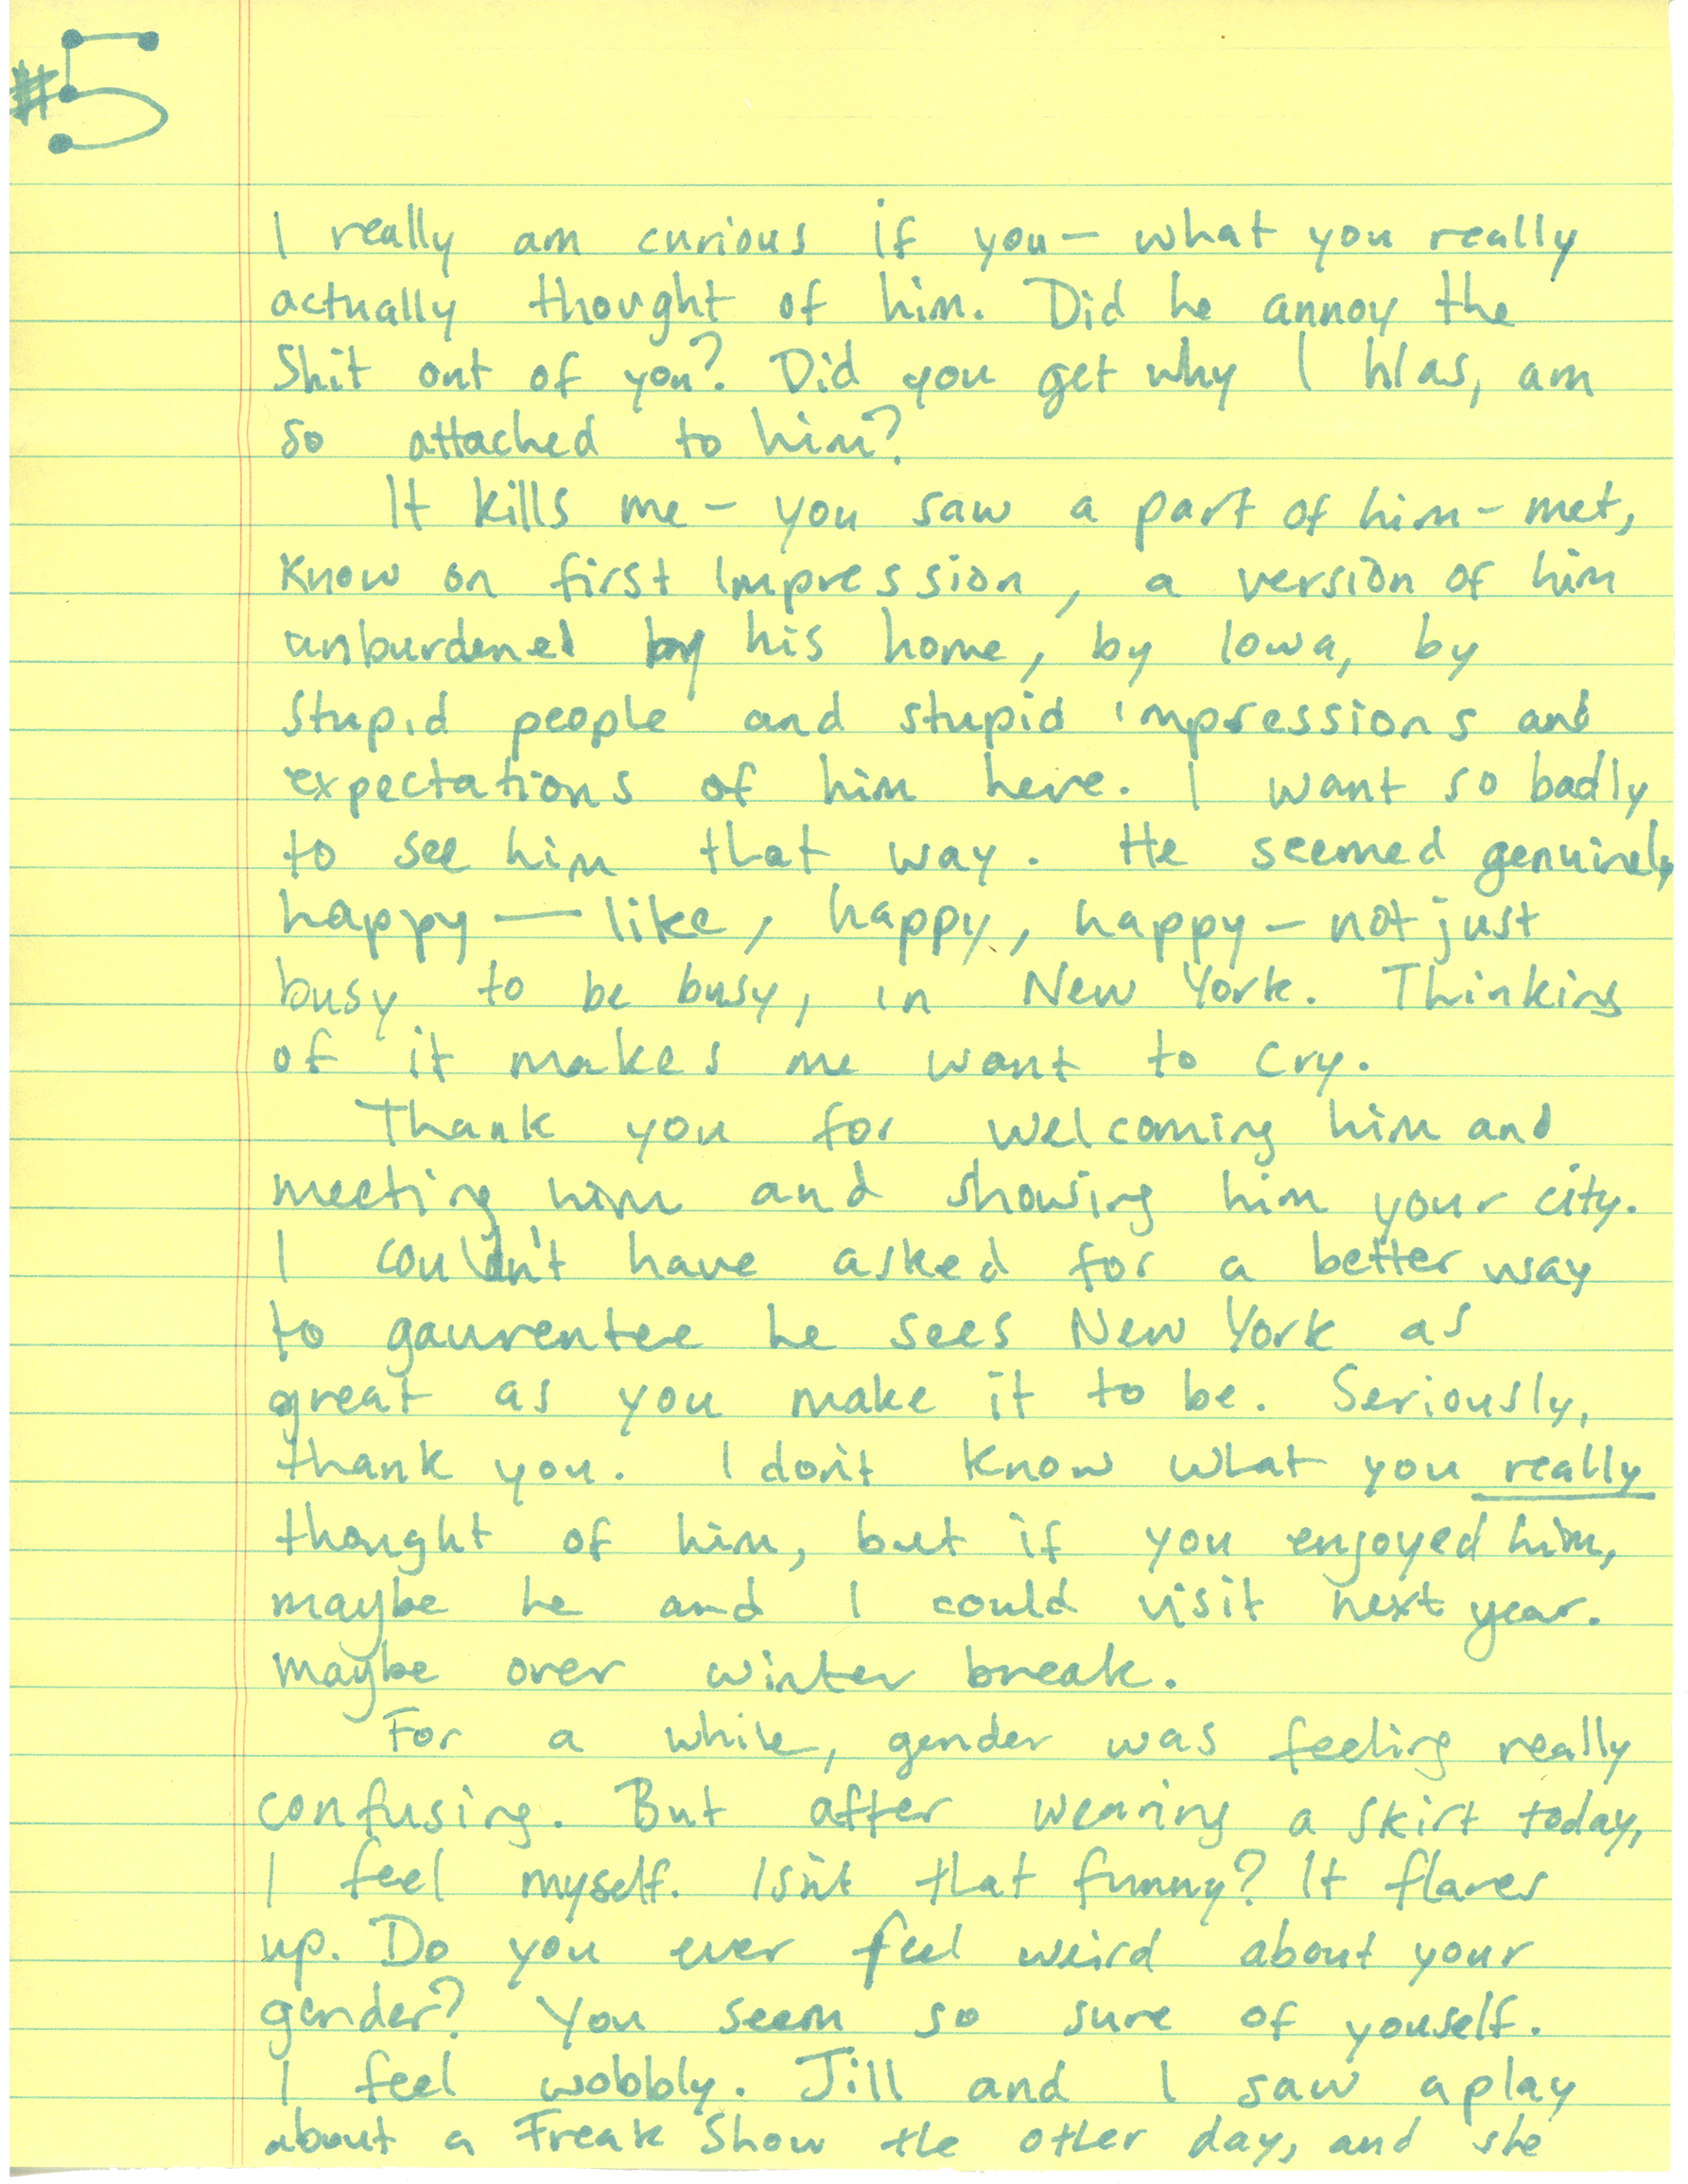 #5
I really am curious if you — what you really
actually thought of him. Did he annoy the
Shit out of you? Did you get why I was, am
so attached to him?
It kills me — you saw a part of him — met,
know on first impression, a version of him
unburdened by his home, by Iowa, by
Stupid people and stupid impressions and
expectations of him here. I want so badly
to see him that way. He seemed genuinely
happy — like, happy, happy — not just
busy to be busy, in New York. Thinking
of it makes me want to cry.
Thank you for welcoming him and
meeting him and showing him your city.
I couldn't have asked for a better way
to gaurentee he sees New York as
great as you make it to be. Seriously,
thank you. I don't know what you really
thought of him, but if you enjoyed him,
maybe he and I could visit next year.
maybe over winter break.
For a while, gender was feeling really
confusing. But after wearing a skirt today,
I feel myself. Isn't that funny? It flares
up. Do you ever feel weird about your
gender? You seem so sure of youself.
I feel wobbly. Jill and I saw a play
about a Freak Show the other day, and she